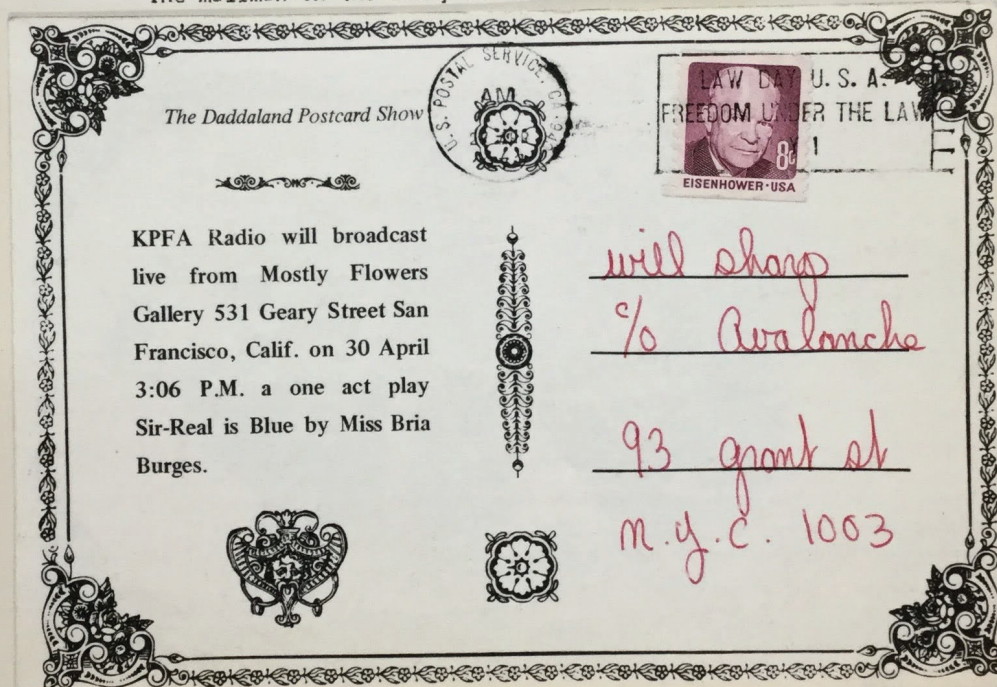 The Daddaland Postcard Show
U.S. POSTAL SERVICE, CA
AM
LAW DAY U. S. A.
FREEDOM UNDER THE LAW
1
8¢
EISENHOWER·USA
KPFA Radio will broadcast
live from Mostly Flowers
Gallery 531 Geary Street San
Francisco, Calif. on 30 April
3:06 P.M. a one act play
Sir-Real is Blue by Miss Bria
Burges.
will sharp
c/o Avalanche
93 grant st
n.y.c. 1003